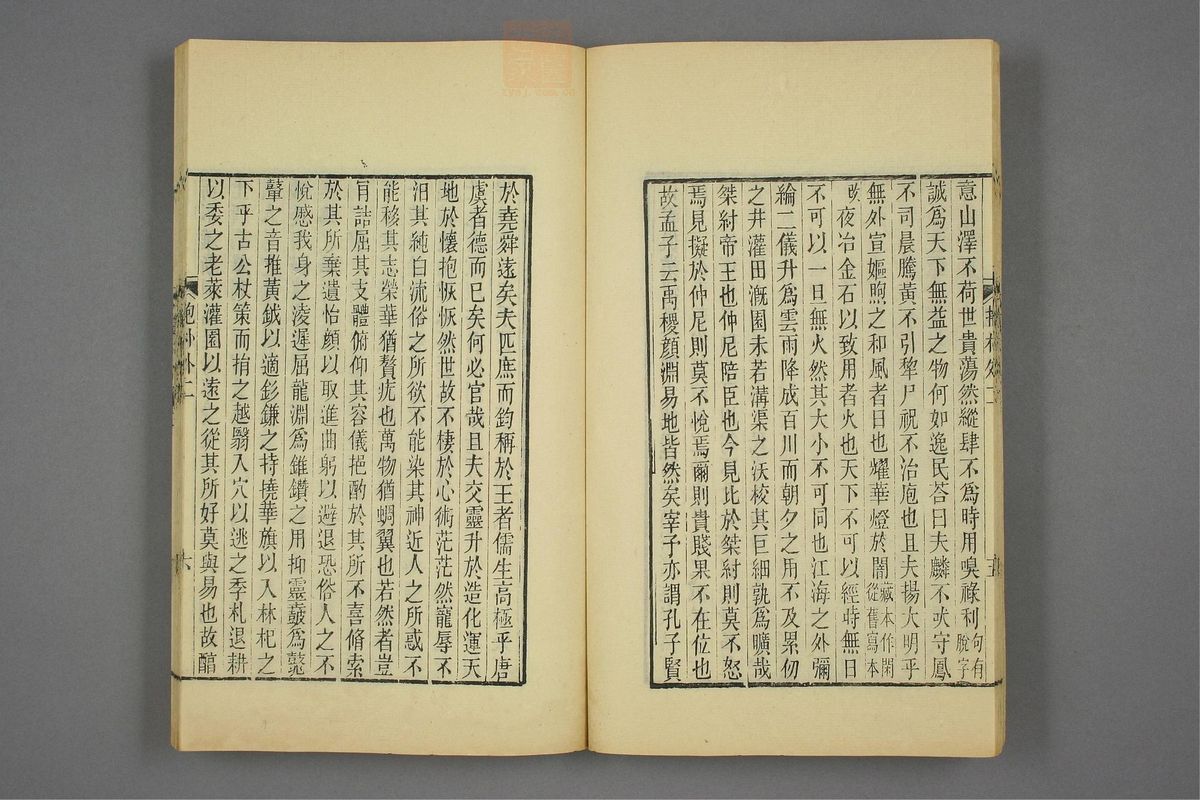 意山澤不荷世貴蕩然縱肆不爲時用嗅祿利句有脫字
誠爲天下無益之物何如逸民荅曰夫麟不吠守鳳
不司晨騰黃不引犂尸祝不治庖也且夫揚大明乎
無外宣嫗煦之和風者日也耀華燈於闇藏本作閑從舊寫本
改夜冶金石以致用者火也天下不可以經時無日
不可以一旦無火然其大小不可同也江海之外彌
綸二儀升爲雲雨降成百川而朝夕之用不及累仞
之井灌田溉園未若溝渠之沃校其巨細孰爲曠哉
桀紂帝王也仲尼陪臣也今見比於桀紂則莫不怒
焉見擬於仲尼則莫不悅焉爾則貴賤果不在位也
故孟子云禹稷顏淵易地皆然矣宰予亦謂孔子賢
五
於堯舜遠矣夫匹庶而鈞稱於王者儒生高極乎唐
虞者德而已矣何必官哉且夫交靈升於造化運天
地於懷抱恢恢然世故不棲於心術茫茫然寵辱不
汨其純白流俗之所欲不能染其神近人之所惑不
能移其志榮華猶贅疣也萬物猶蜩翼也若然者豈
肎詰屈其支體俯仰其容儀挹酌於其所不喜脩索
於其所棄遺怡顏以取進曲躬以避退恐俗人之不
悅慼我身之凌遲屈龍淵爲錐鑽之用抑靈鼖爲鼛
鼙之音推黃鉞以適釤鎌之持撓華旗以入林杞之
下乎古公杖策而捐之越翳入穴以逃之季札退耕
以委之老萊灌園以遠之從其所好莫與易也故醇
抱朴外二
六